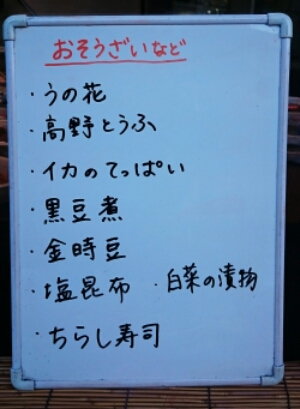 おそうざいなど
・うの花
・高野とうふ
・イカのてっぱい
・黒豆煮
・金時豆
・塩昆布 ・白菜の漬物
・ちらし寿司